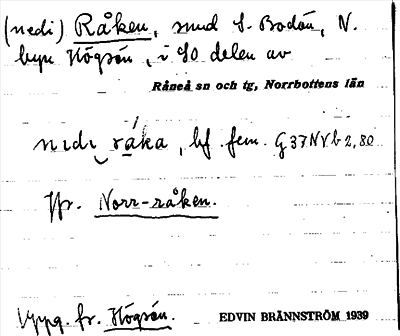 (nedi) Råken, sund S. Bodön, N.
byn Högsön, i SO delen av
Råneå sn och tg, Norrbottens län
nıdi råka, bf. fem. G 37 NV b 2, 80
Jfr. Norr-råken.
Uppg. fr. Högsön. EDVIN BRÄNNSTRÖM 1939